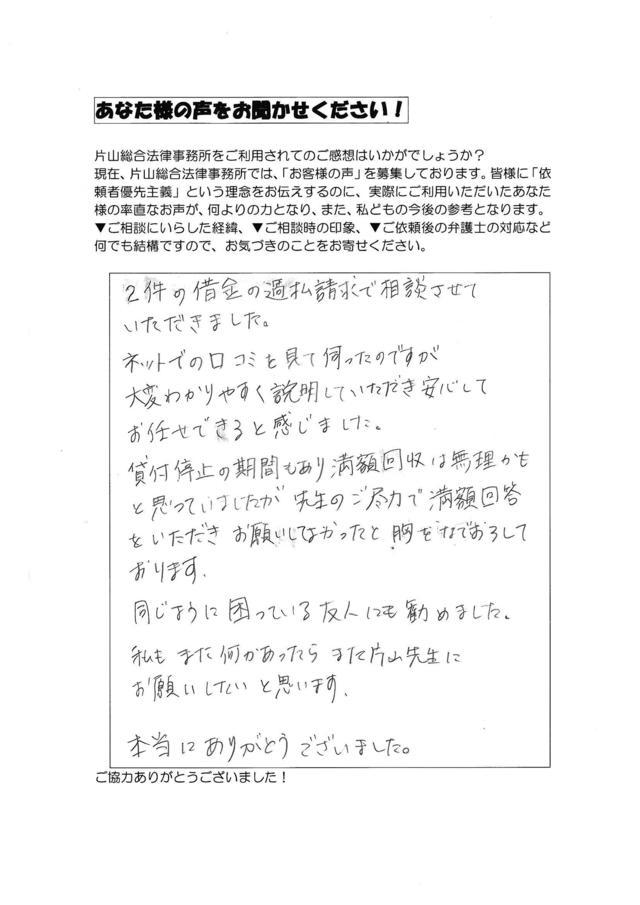 あなた様の声をお聞かせください！
片山総合法律事務所をご利用されてのご感想はいかがでしょうか？
現在、片山総合法律事務所では、「お客様の声」を募集しております。皆様に「依
頼者優先主義」という理念をお伝えするのに、実際にご利用いただいたあなた
様の率直なお声が、何よりの力となり、また、私どもの今後の参考となります。
▼ご相談にいらした経緯、▼ご相談時の印象、▼ご依頼後の弁護士の対応など
何でも結構ですので、お気づきのことをお寄せください。
2件の借金の過払請求で相談させて
いただきました。
ネットでの口コミを見て伺ったのですが
大変わかりやすく説明していただき安心して
お任せできると感じました。
貸付停止の期間もあり満額回収は無理かも
と思っていましたが先生のご尽力で満額回答
をいただきお願いしてよかったと胸をなでおろして
おります。
同じように困っている友人にも勧めました。
私もまた何かあったらまた片山先生に
お願いしたいと思います。
本当にありがとうございました。
ご協力ありがとうございました！